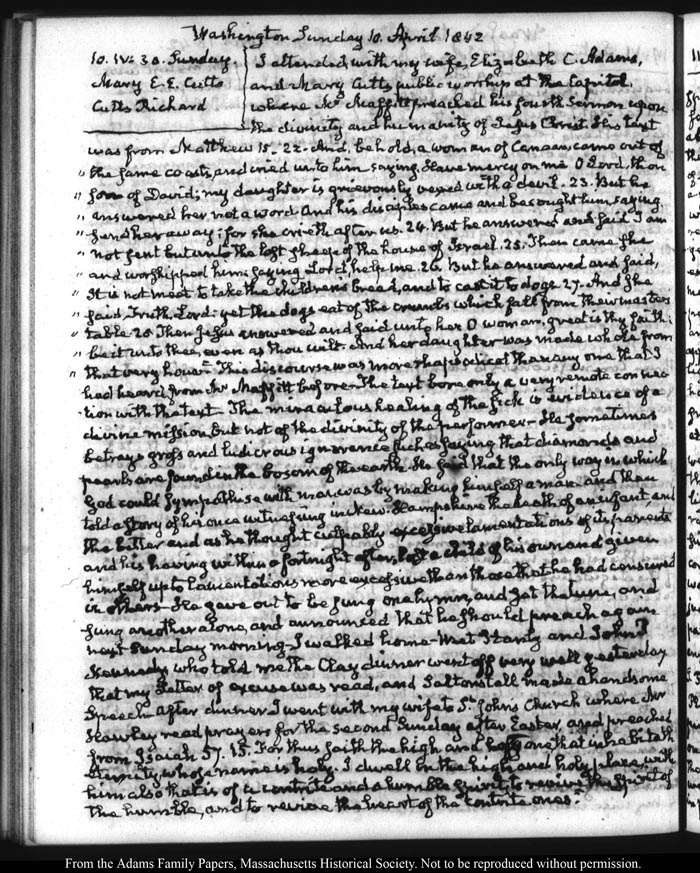 Washington Sunday 10. April 1842
10. IV: 30. Sunday.
Mary E. E. Cutts
Cutts Richard
I attended with my wife, Elizabeth C. Adams,
and Mary Cutts public worship at the Capitol,
where Mr Maffitt preached his fourth Sermon upon
the divinity and humanity of Jesus Christ. His text
was from Matthew 15. 22. And, behold, a woman of Canaan came out of
" the same coasts, and cried unto him saying, Have mercy on me O Lord, thou
" Son of David; my daughter is grievously vexed with a devil. 23. But he
" answered her not a word. And his disciples came and besought him, saying,
" Send her away; for she crieth after us. 24. But he answered and said I am
" not sent but unto the lost sheep of the house of Israel. 25. Then came she
" and worshipped him, saying Lord, help me. 26. But he answered and said,
" It is not meet to take the children's bread, and to cast it to dogs. 27. And she
" said, Truth, Lord: yet the dogs eat of the crumbs which fall from their masters
" table 28 Then Jesus answered and said unto her O woman, great is thy faith:
" be it unto thee, even as thou wilt. And her daughter was made whole from
" that very hour." This discourse was more rhapsodical than any one that I
had heard from Mr Maffitt before. The text bore only a very remote connec
-tion with the text. The miraculous healing of the sick is evidence of a
divine mission, but not of the divinity of the performer. He sometimes
betrays gross and ludicrous ignorance, such as saying that diamonds and
pearls are found in the bosom of the earth. He said that the only way in which
God could sympathise with man was by making himself a man. and then
told a story of his once witnessing in New-Hampshire the death of an infant, and
the bitter and as he thought culpably excessive lamentations of its parents
and his having within a fortnight after, lost a child of his own and given
himself up to lamentations more excessive than those that he had censured
in others. He gave out to be sung one hymn, and set the tune, and
sung another alone, and announced that he should preach again
next Sunday morning. I walked home. Met Stanly and John P
Kennedy who told me the Clay dinner went off very well yesterday
that my Letter of excuse was read, and Saltonstall made a handsome
Speech. After dinner I went with my wife to St. Johns Church where Mr
Hawley read prayers for the second Sunday after Easter, and preached
from Isaiah 57. 15. For thus saith the high and lofty one that inhabiteth
eternity, whose name is holy. I dwell in the high and holy place, with
him also that is of a contrite and a humble Spirit, to revive the Spirit of
the humble, and to revive the heart of the contrite ones."
From the Adams Family Papers, Massachusetts Historical Society. Not to be reproduced without permission.